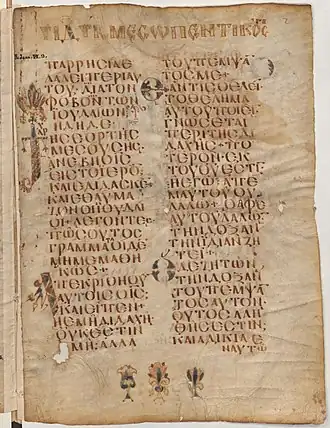 ΜΕϹΩΠΕΝΤΙΚΟϹ
ΠΑΡΡΗϹΙΑ Ε
ΛΑΛΕΙ ΠΕΡΙ ΑΥ
ΤΟΥ· ΔΙΑ ΤΟΝ
ΦΟΒΟΝ ΤΩΝ
ΙΟΥΔΑΙΩΝ
ΗΔΗ ΔΕ
ΤΗϹ ΕΟΡΤΗϹ
ΜΕϹΟΥϹΗϹ
ΑΝΕΒΗ Ο ΙϹ
ΕΙϹ ΤΟ ΙΕΡΟ
ΚΑΙ ΕΔΙΔΑϹΚΕ
ΚΑΙ ΕΘΑΥΜΑ
ΖΟΝ ΟΙ ΙΟΥΔΑΙ
ΟΙ ΛΕΓΟΝΤΕϹ
ΠΩϹ ΟΥΤΟϹ
ΓΡΑΜΜΑΤΑ ΟΙΔΕ
ΜΗ ΜΕΜΑΘΗ
ΚΩϹ +
ΑΠΕΚΡΙΘΗ ΟΥ
ΑΥΤΟΙϹ Ο ΙϹ
ΚΑΙ ΕΙΠΕΝ
Η ΕΜΗ ΔΙΔΑΧΗ
ΟΥΚ ΕϹΤΙΝ
ΕΜΗ ΑΛΛΑ
ΤΟΥ ΠΕΜΨΑ
ΤΟϹ ΜΕ +
ΕΑΝ ΤΙϹ ΘΕΛΕΙ
ΤΟ ΘΕΛΗΜΑ
ΑΥΤΟΥ ΠΟΙΕΙ
ΓΝΩϹΕΤΑΙ
ΠΕΡΙ ΤΗϹ ΔΙ
ΔΑΧΗϹ + ΠΟ
ΤΕΡΟΝ ΕΚ
ΤΟΥ ΘΥ ΕϹΤΙ
Η ΕΓΩ ΑΠ Ε
ΜΑΥΤΟΥ ΛΑ
ΛΩ + Ο ΑΦ Ε
ΑΥΤΟΥ ΛΑΛΩ
ΤΗΝ ΔΟΞΑ
ΤΗΝ ΙΔΙΑΝ ΖΗ
ΤΕΙ +
Ο ΔΕ ΖΗΤΩΝ
ΤΗΝ ΔΟΞΑ
ΤΟΥ ΠΕΜΨΑ
ΤΟϹ ΑΥΤΟΝ
ΟΥΤΟϹ ΑΛΗ
ΘΗϹ ΕϹΤΙΝ
ΚΑΙ ΑΔΙΚΙΑ Ε
Ν ΑΥΤΩ